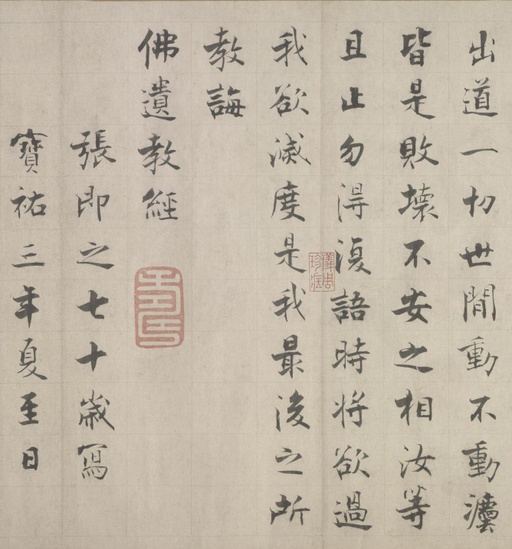 出道一切世間動不動灋
皆是敗壞不安之相汝等
且止勿得復語時將欲過
我欲滅度是我最後之所
教誨
佛遺教經
張即之七十歲寫
寶祐三年夏至日